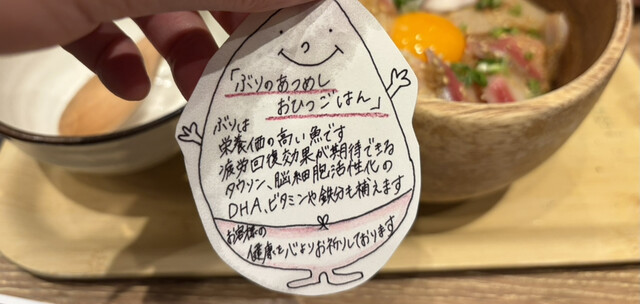 「ぶりのあつめし
おひつごはん」
ぶりは
栄養価の高い魚です
疲労回復効果が期待できる
タウリン、脳細胞活性化の
DHA、ビタミンや鉄分も補えます
お客様の
健康を心よりお祈りしております